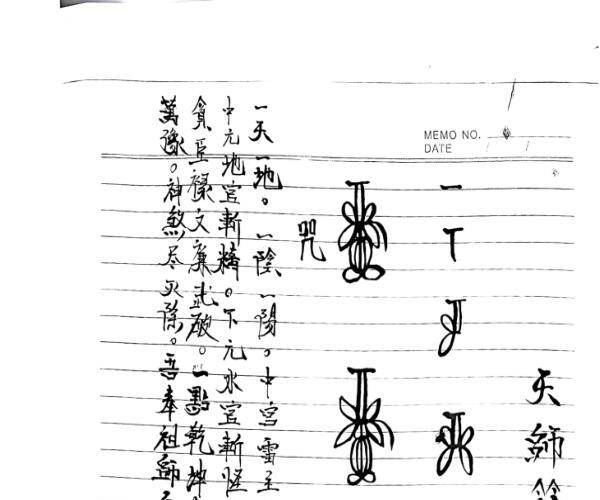 MEMO NO.
DATE
天師
咒
一天一地。一陰一陽。中宮雷主
中元地官斬精。下元水官斬怪
貪巨祿文廉武破。一點乾坤。
萬。神煞尽灭除。吾奉祖師